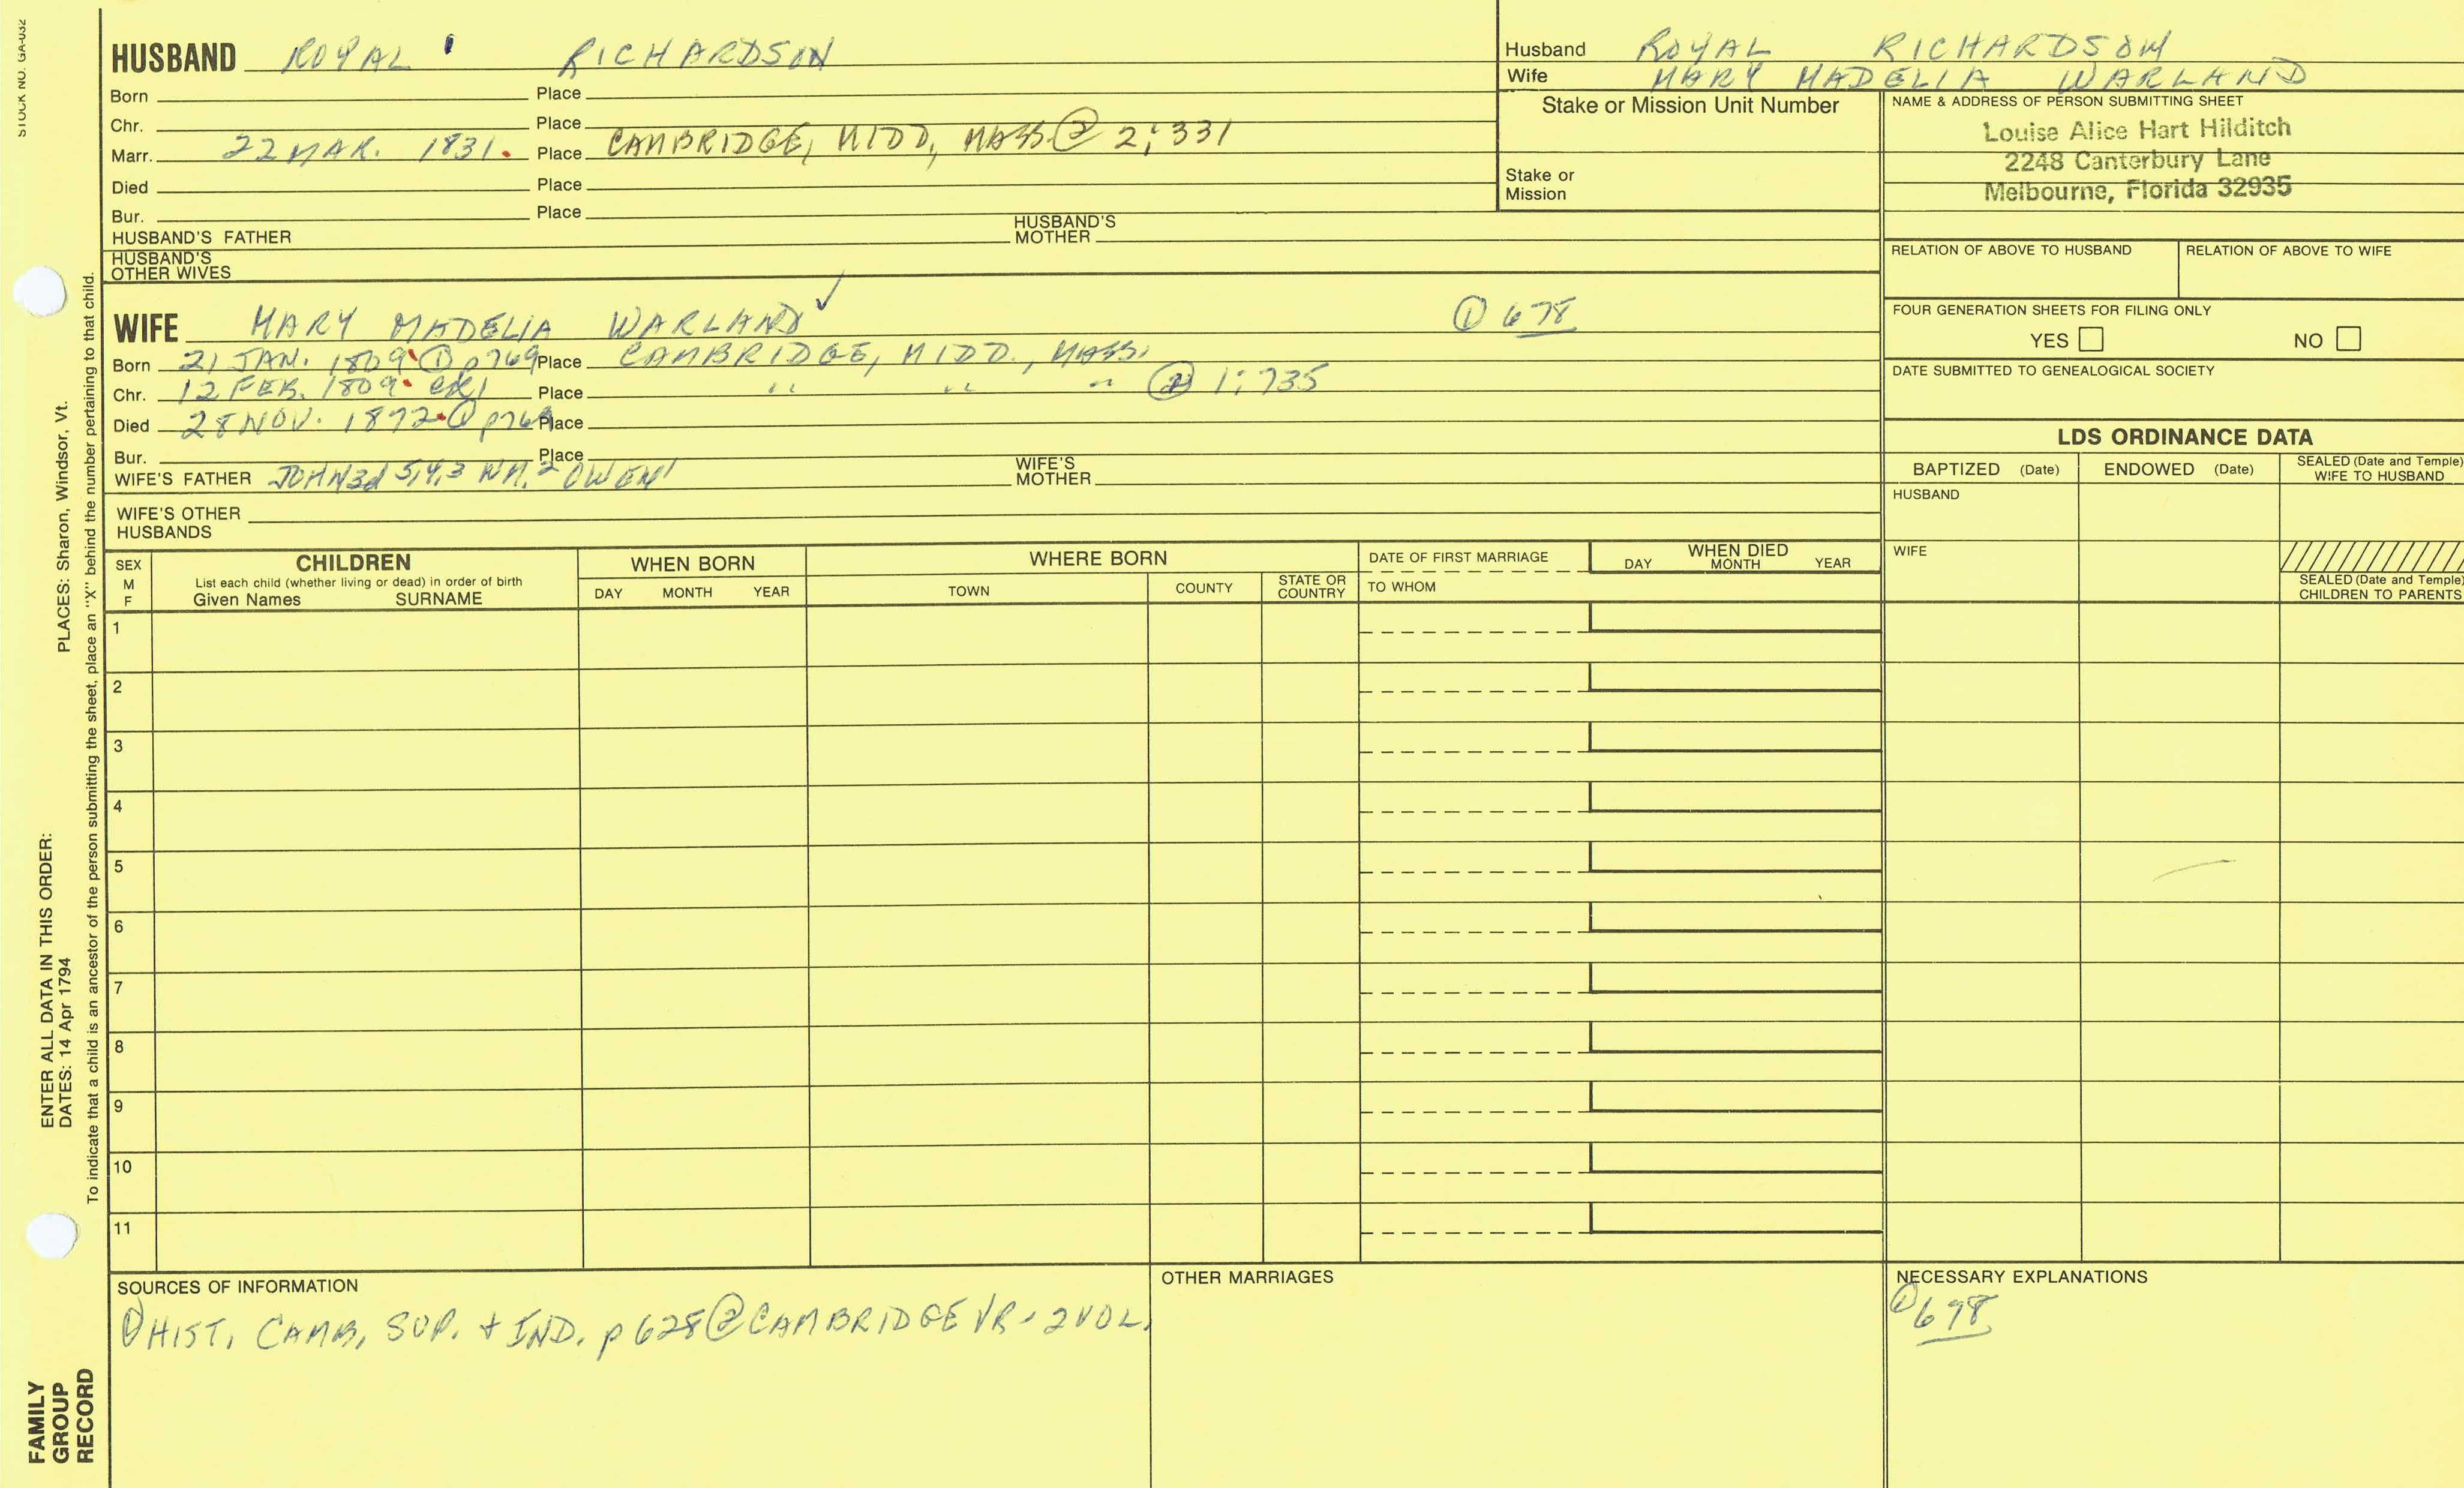 STOCK NO. GA-032
HUSBAND ROYAL RICHARDSON
Born Place
Chr. Place
Marr. 22 MAR. 1831. Place CAMBRIDGE, MIDD, MASS ② 2:331
Died Place
Bur. Place
HUSBAND'S FATHER HUSBAND'S MOTHER
HUSBAND'S OTHER WIVES
WIFE MARY MADELIA WARLAND ✓ ① 678
Born 21 JAN. 1809 ① p769 Place CAMBRIDGE, MIDD., MASS.
Chr. 12 FEB. 1809 CR1 Place " " " ② 1:735
Died 28 NOV. 1872 ① p769 Place
Bur. Place
WIFE'S FATHER JOHN3d 5,4,3 WM.2 OWEN1 WIFE'S MOTHER
WIFE'S OTHER HUSBANDS
Husband ROYAL RICHARDSON
Wife MARY MADELIA WARLAND
Stake or Mission Unit Number
Stake or Mission
NAME & ADDRESS OF PERSON SUBMITTING SHEET
Louise Alice Hart Hilditch
2248 Canterbury Lane
Melbourne, Florida 32935
RELATION OF ABOVE TO HUSBAND RELATION OF ABOVE TO WIFE
FOUR GENERATION SHEETS FOR FILING ONLY
YES NO
DATE SUBMITTED TO GENEALOGICAL SOCIETY
LDS ORDINANCE DATA
BAPTIZED (Date) ENDOWED (Date) SEALED (Date and Temple) WIFE TO HUSBAND
HUSBAND
WIFE
SEALED (Date and Temple) CHILDREN TO PARENTS
SEX M F
CHILDREN
List each child (whether living or dead) in order of birth
Given Names SURNAME
WHEN BORN
DAY MONTH YEAR
WHERE BORN
TOWN COUNTY STATE OR COUNTRY
DATE OF FIRST MARRIAGE
TO WHOM
WHEN DIED
DAY MONTH YEAR
1
2
3
4
5
6
7
8
9
10
11
SOURCES OF INFORMATION
① HIST. CAMB, SUP. + IND. p 628 ② CAMBRIDGE VR - 2 VOL.
OTHER MARRIAGES
NECESSARY EXPLANATIONS
① 678
PLACES: Sharon, Windsor, Vt.
ENTER ALL DATA IN THIS ORDER:
DATES: 14 Apr 1794
To indicate that a child is an ancestor of the person submitting the sheet, place an "X" behind the number pertaining to that child.
FAMILY
GROUP
RECORD